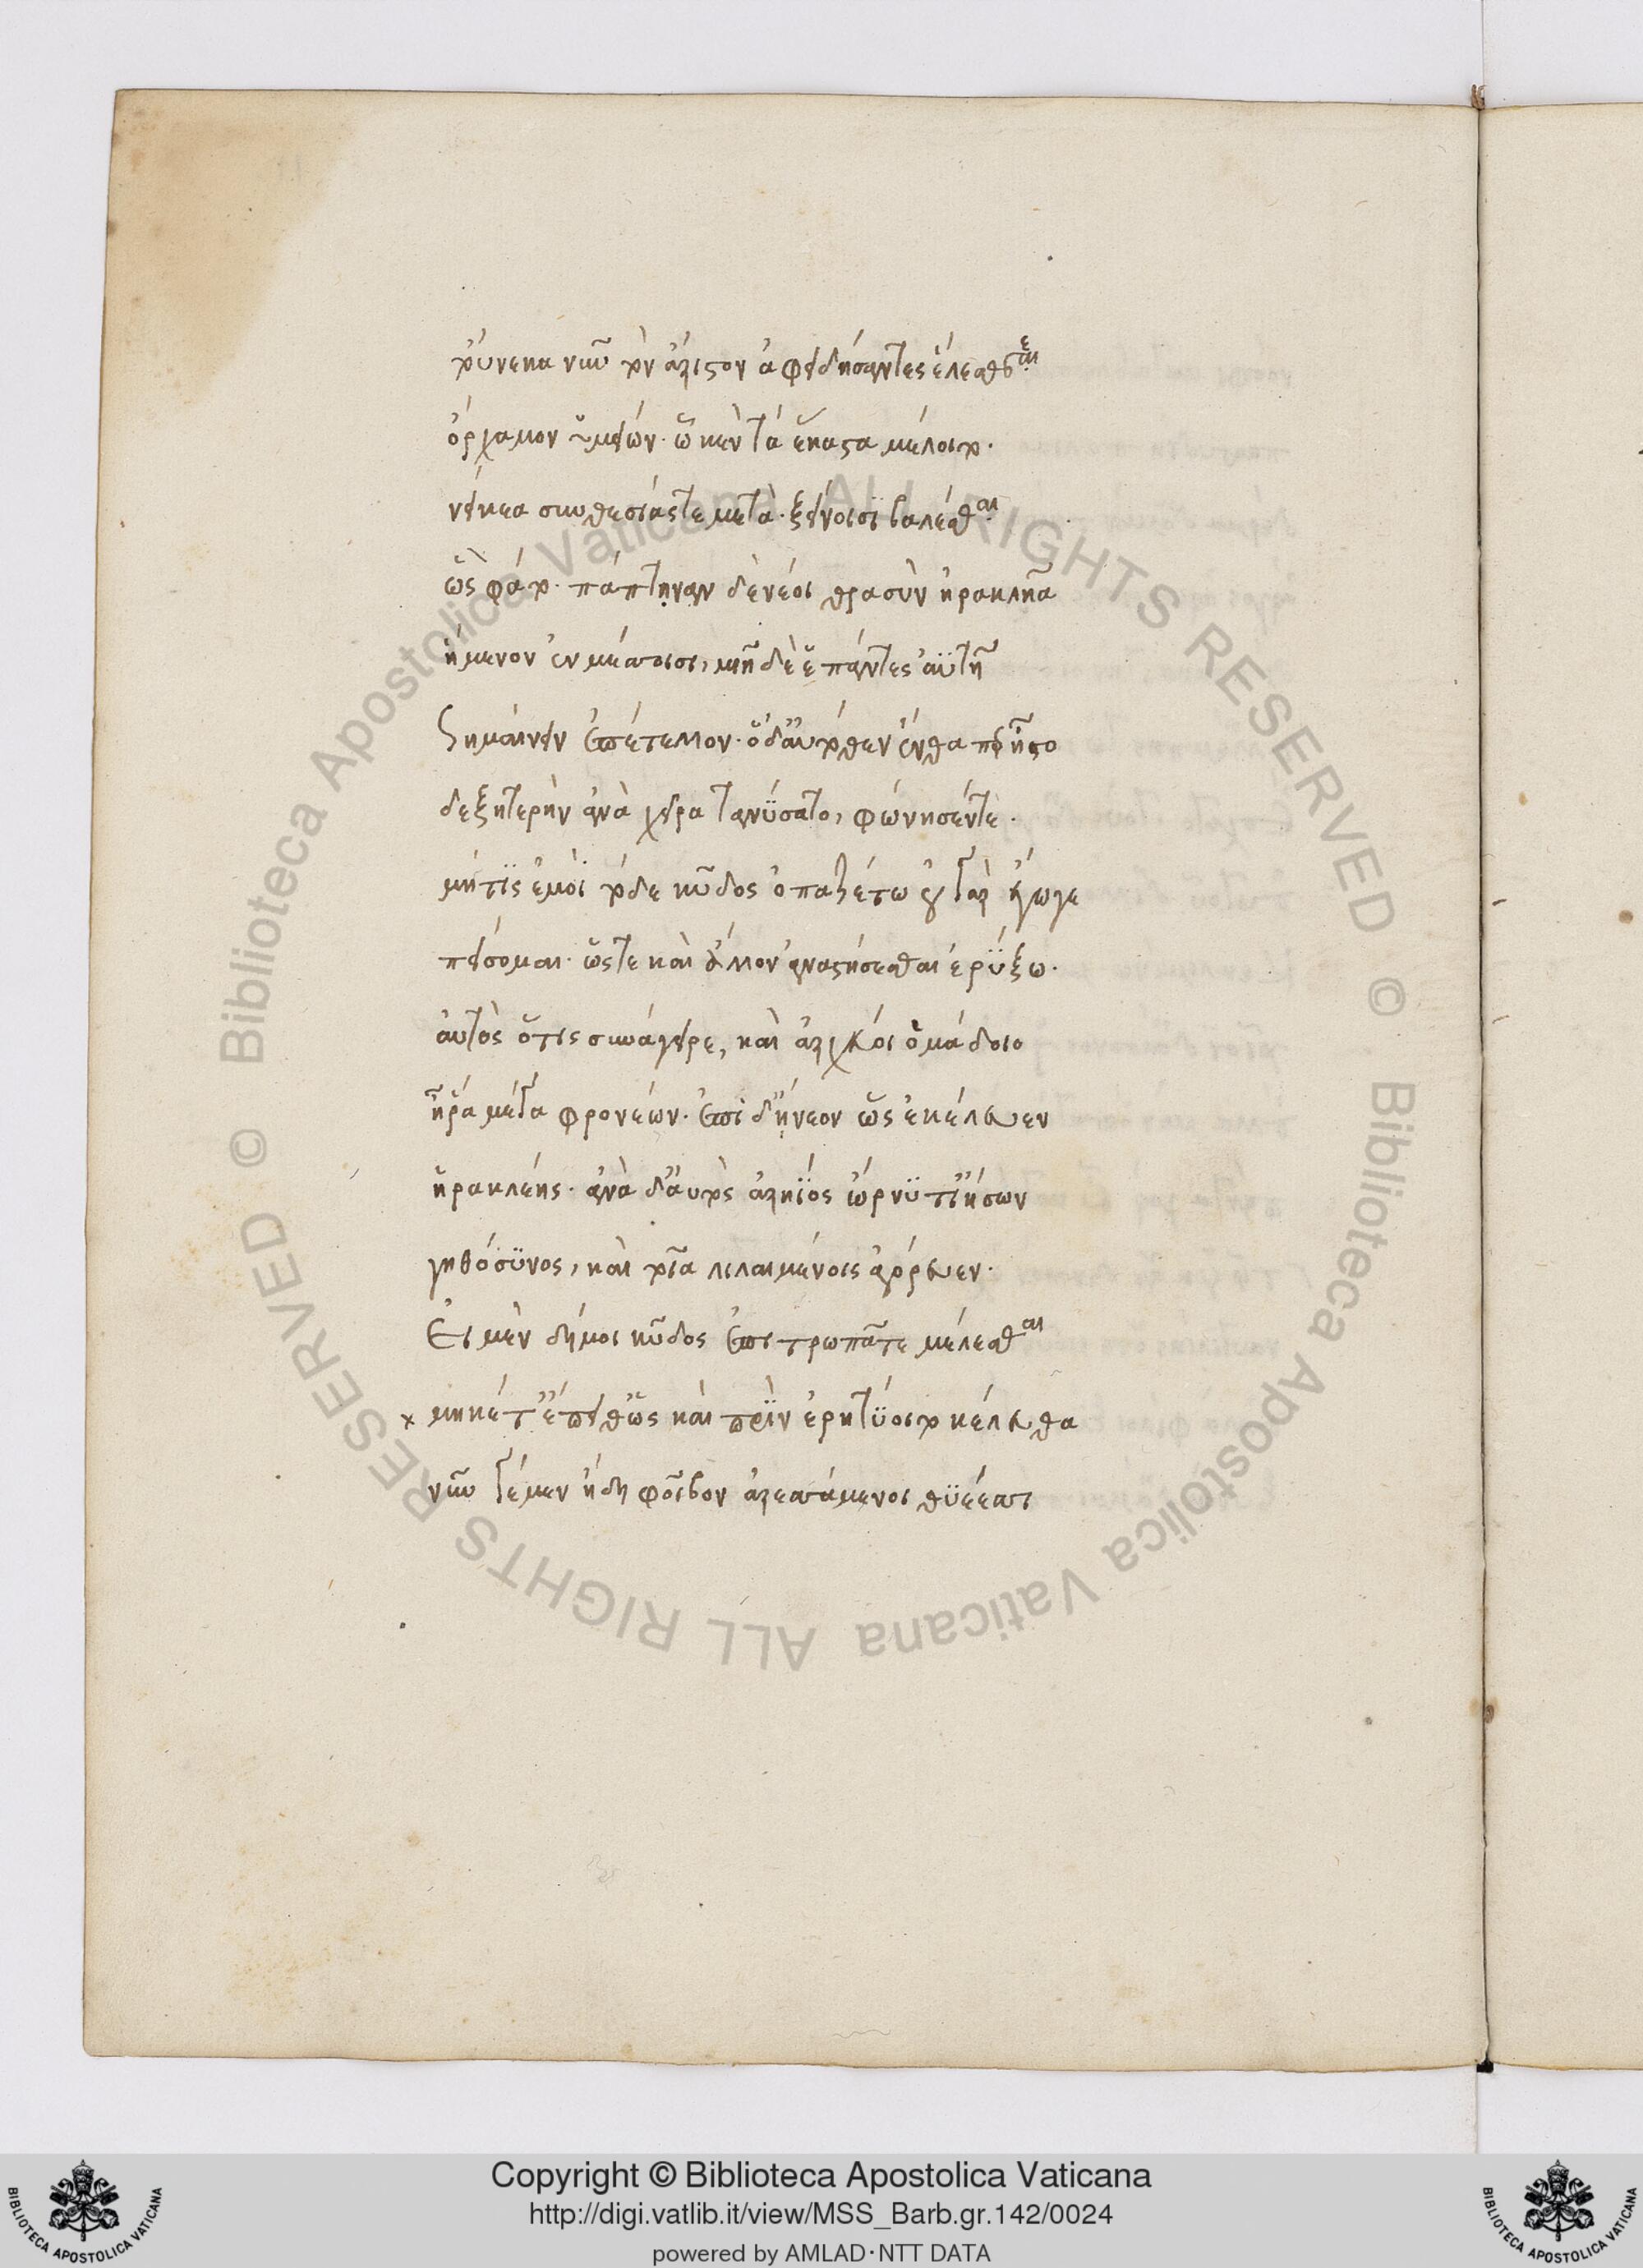 τούνεκα νῦν τὸν ἄριστον ἀφειδήσαντες ἕλεσθε
ὄρχαμον ὑμείων· ὧ κὲν τὰ ἕκαστα μέλοιτο·
νείκεα συνθεσίας τε μετὰ· ξείνοισϊ βαλέσθαι
ὣς φάτο· πάπτηναν δὲ νέοι θρασὺν ἡρακλῆα
ἥμενον ἐν μέσσοισι, μιῆ δὲ ἕ πάντες ἀϋτῆ
Σημαίνειν ἐπέτελλον· ὁ δ' αὐτόθεν ἔνθα περ ἧστο
δεξητερὴν ἀνὰ χεῖρα τανύσατο, φώνησέν τε·
μήτϊς ἐμοὶ τόδε κῦδος ὀπαζέτω οὐ γὰρ ἔγωγε
πείσομαι· ὥστε καὶ ἄλλον ἀναστήσεσθαι ἐρύξω·
αὐτὸς ὅτις συνάγειρε, καὶ ἀρχέτοι ὁμάδοιο
ἦ ῥα μέγα φρονέων· ἐπὶ δ' ἤνεον ὡς ἐκέλευεν
ἡρακλέης· ἀνὰ δ' αυτὸς ἀρήϊος ὤρνϋτ' ἰήσων
γηθόσϋνος, καὶ τοῖα λιλαιμένοις ἀγόρευεν·
Εἰ μὲν δή μοι κῦδος ἐπιτρωπᾶτε μέλεσθαι
× μηκέτ' ἔπειθ' ὡς καὶ πρὶν ἐρητϋοιτο κέλευθα
νῦν γέ μεν ἤδη φοῖβον ἀρεσσάμενοι θϋέεσσι
Copyright © Biblioteca Apostolica Vaticana
http://digi.vatlib.it/view/MSS_Barb.gr.142/0024
powered by AMLAD·NTT DATA
BIBLIOTECA APOSTOLICA VATICANA
BIBLIOTECA APOSTOLICA VATICANA
© Biblioteca Apostolica Vaticana ALL RIGHTS RESERVED © Biblioteca Apostolica Vaticana ALL RIGHTS RESERVED